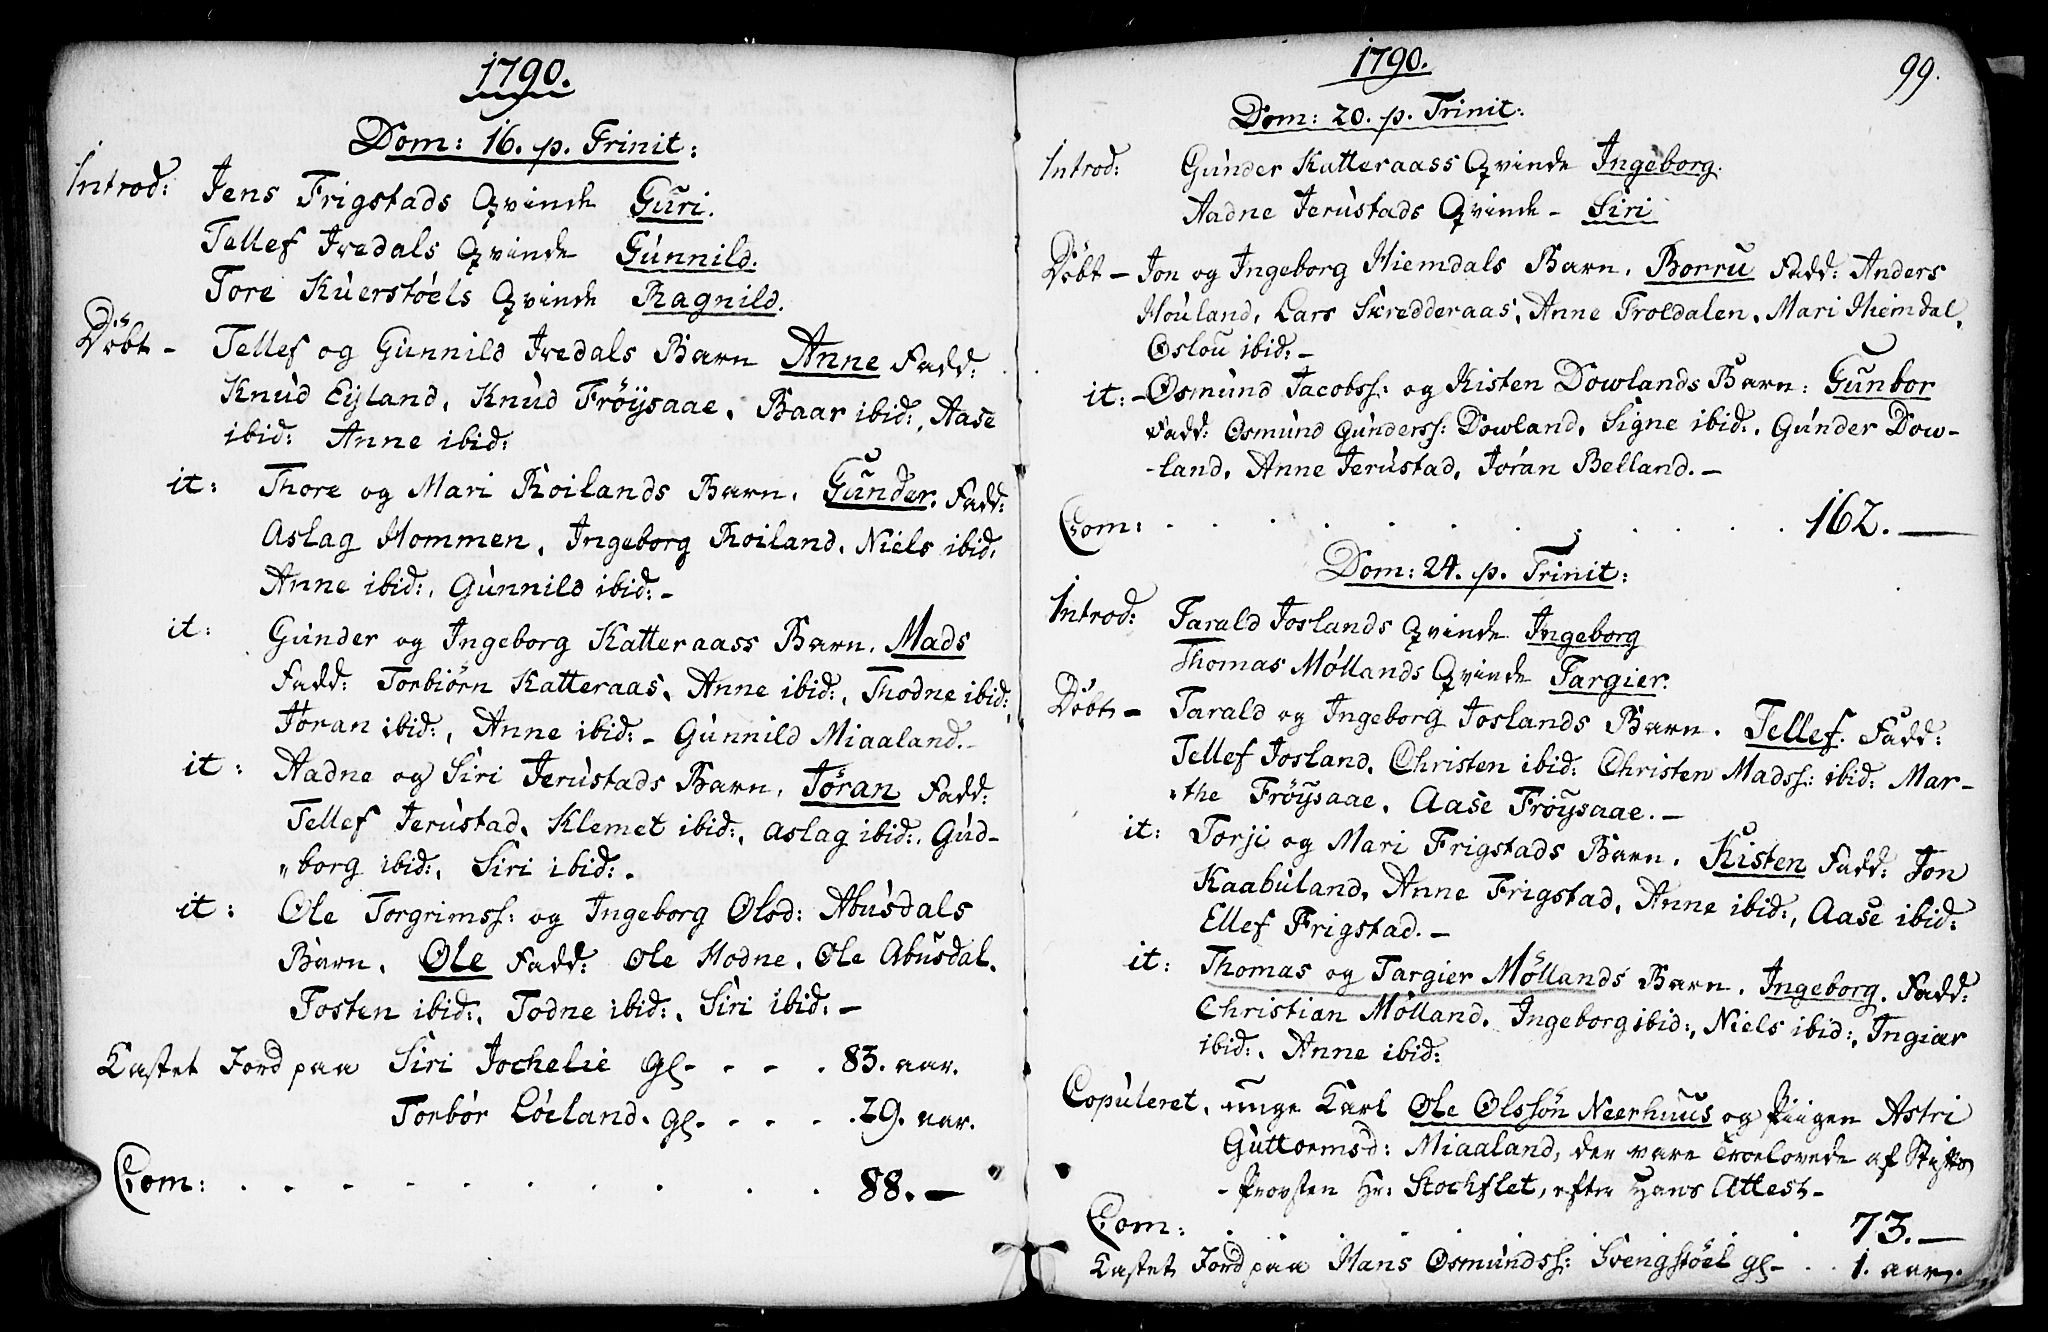 1790.
Dom: 16. p. Trinit:
Introd: Jens Frigstads Qvinde Guri.
Tellef Iredals Qvinde Gunnild.
Tore Kuerstöels Qvinde Ragnild.
Döbt - Tellef og Gunnild Iredals Barn Anne Fadd:
Knud Eyland, Knud Fröysaae, Baar ibid:, Aase
ibid: Anne ibid:
it: Thore og Mari Roilands Barn. Gunder. Fadd:
Aslag Hommen, Ingeborg Roiland, Niels ibid.
Anne ibid:, Gunnild ibid: -
it: Gunder og Ingeborg Katteraass Barn. Mads
Fadd: Torbiörn Katteraas, Anne ibid:, Thodne ibid:,
Jöran ibid:, Anne ibid: - Gunnild Miaaland. -
it: Aadne og Siri Jerustads Barn, Jöran Fadd:
Tellef Jerustad, Klemet ibid:, Aslag ibid:, Gud-
„borg ibid:, Siri ibid:.
it: Ole Torgrimss: og Ingeborg Olsd: Abusdals
Barn. Ole Fadd: Ole Hodne, Ole Abusdal,
Tosten ibid:, Todne ibid:, Siri ibid: -
Kastet Jord paa Siri Jochelie gl - . . . 83. aar.
Torbör Löeland. gl - . . . 29. aar.
Com: . . . . . . . . . . 88. -
1790.
99.
Dom: 20. p. Trinit:
Introd: Gunder Katteraass Qvinde Ingeborg.
Aadne Jerustads Qvinde - Siri
Döbt - Jon og Ingeborg Hiemdals Barn. Borru Fadd: Anders
Houland, Lars Skredderaas, Anne Troldalen, Mari Hiemdal,
Oslou ibid: -
it: - Osmund Jacobss: og Kisten Dowlands Barn: Gunbor
Fadd: Osmund Gunderss: Dowland, Signe ibid:, Gunder Dow-
-land, Anne Jerustad, Jöran Belland. -
Com: . . . . . . . . . . . 162. -
Dom: 24. p. Trinit:
Introd: Tarald Joslands Qvinde Ingeborg
Thomas Möllands Qvinde Targier.
Döbt - Tarald og Ingeborg Joslands Barn. Tellef. Fadd:
Tellef Josland, Christen ibid: Christen Madss: ibid: Mar-
„the Fröysaae, Aase Fröysaae. -
it: Torji og Mari Frigstads Barn. Kisten Fadd: Jon
Kaabuland, Anne Frigstad, Anne ibid:, Aase ibid:
Ellef Frigstad. -
it: Thomas og Targier Möllands Barn. Ingeborg. Fadd:
Christian Mölland, Ingeborg ibid:, Niels ibid:, Ingiær
ibid:, Anne ibid:
Copuleret, unge Karl Ole Olssön Neerhuus og Piigen Astri
Guttormsd: Miaaland, der vare Troelovede af Stifts
- Provsten Hr: Stockflet, efter Hans Attest -
Com: . . . . . . . . 73. -
Kastet Jord paa Hans Osmundss: Svengstöel gl - . . 1. aar.